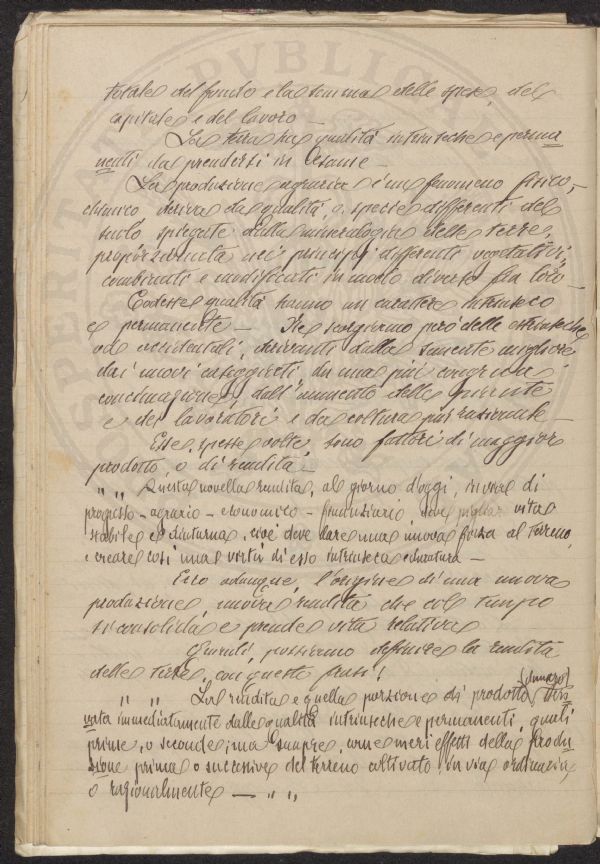 totale del fondo e la somma delle spese, del
capitale e del lavoro —
La terra ha qualità intrinseche e perma
nenti da prendersi in esame —
La produzione agraria è un fenomeno fisico-
chimico deriva da qualità, o specie differenti del
suolo, spiegate dalla mineralogia delle terre,
proporzionata nei principi differenti vegetativi,
combinati e modificati in modo diverso fra loro —
Codeste qualità hanno un carattere intrinseco
e permanente — Ne scorgiamo però delle estrinseche
od accidentali, derivanti dalla semente migliore
dai nuovi caseggiati, da una più congrua
concimazione, dall'aumento delle piante
e dei lavoratori e da coltura più razionale —
Esse, spesse volte, sono fattori di maggior
prodotto, o di rendita.
" " Questa novella rendita, al giorno d'oggi, in via di
progresso - agrario - economico - finanziario deve pigliar vita
stabile e diuturna, cioè deve dare una nuova forza al terreno,
e creare così una virtù di esso intrinseca e duratura —
Ecco adunque, l'origine di una nuova
produzione, nuova rendita che col tempo
si consolida e prende vita relativa
Quindi, possiamo definire la rendita
delle terre, con queste frasi!
" " La rendita è quella porzione di prodotto (denaro) deri
vata immediatamente dalle qualità intrinseche e permanenti, quali
prime, o seconde; ma sempre, come meri effetti della produ
zione prima o successiva del terreno coltivato, in via ordinaria,
o razionalmente — " "